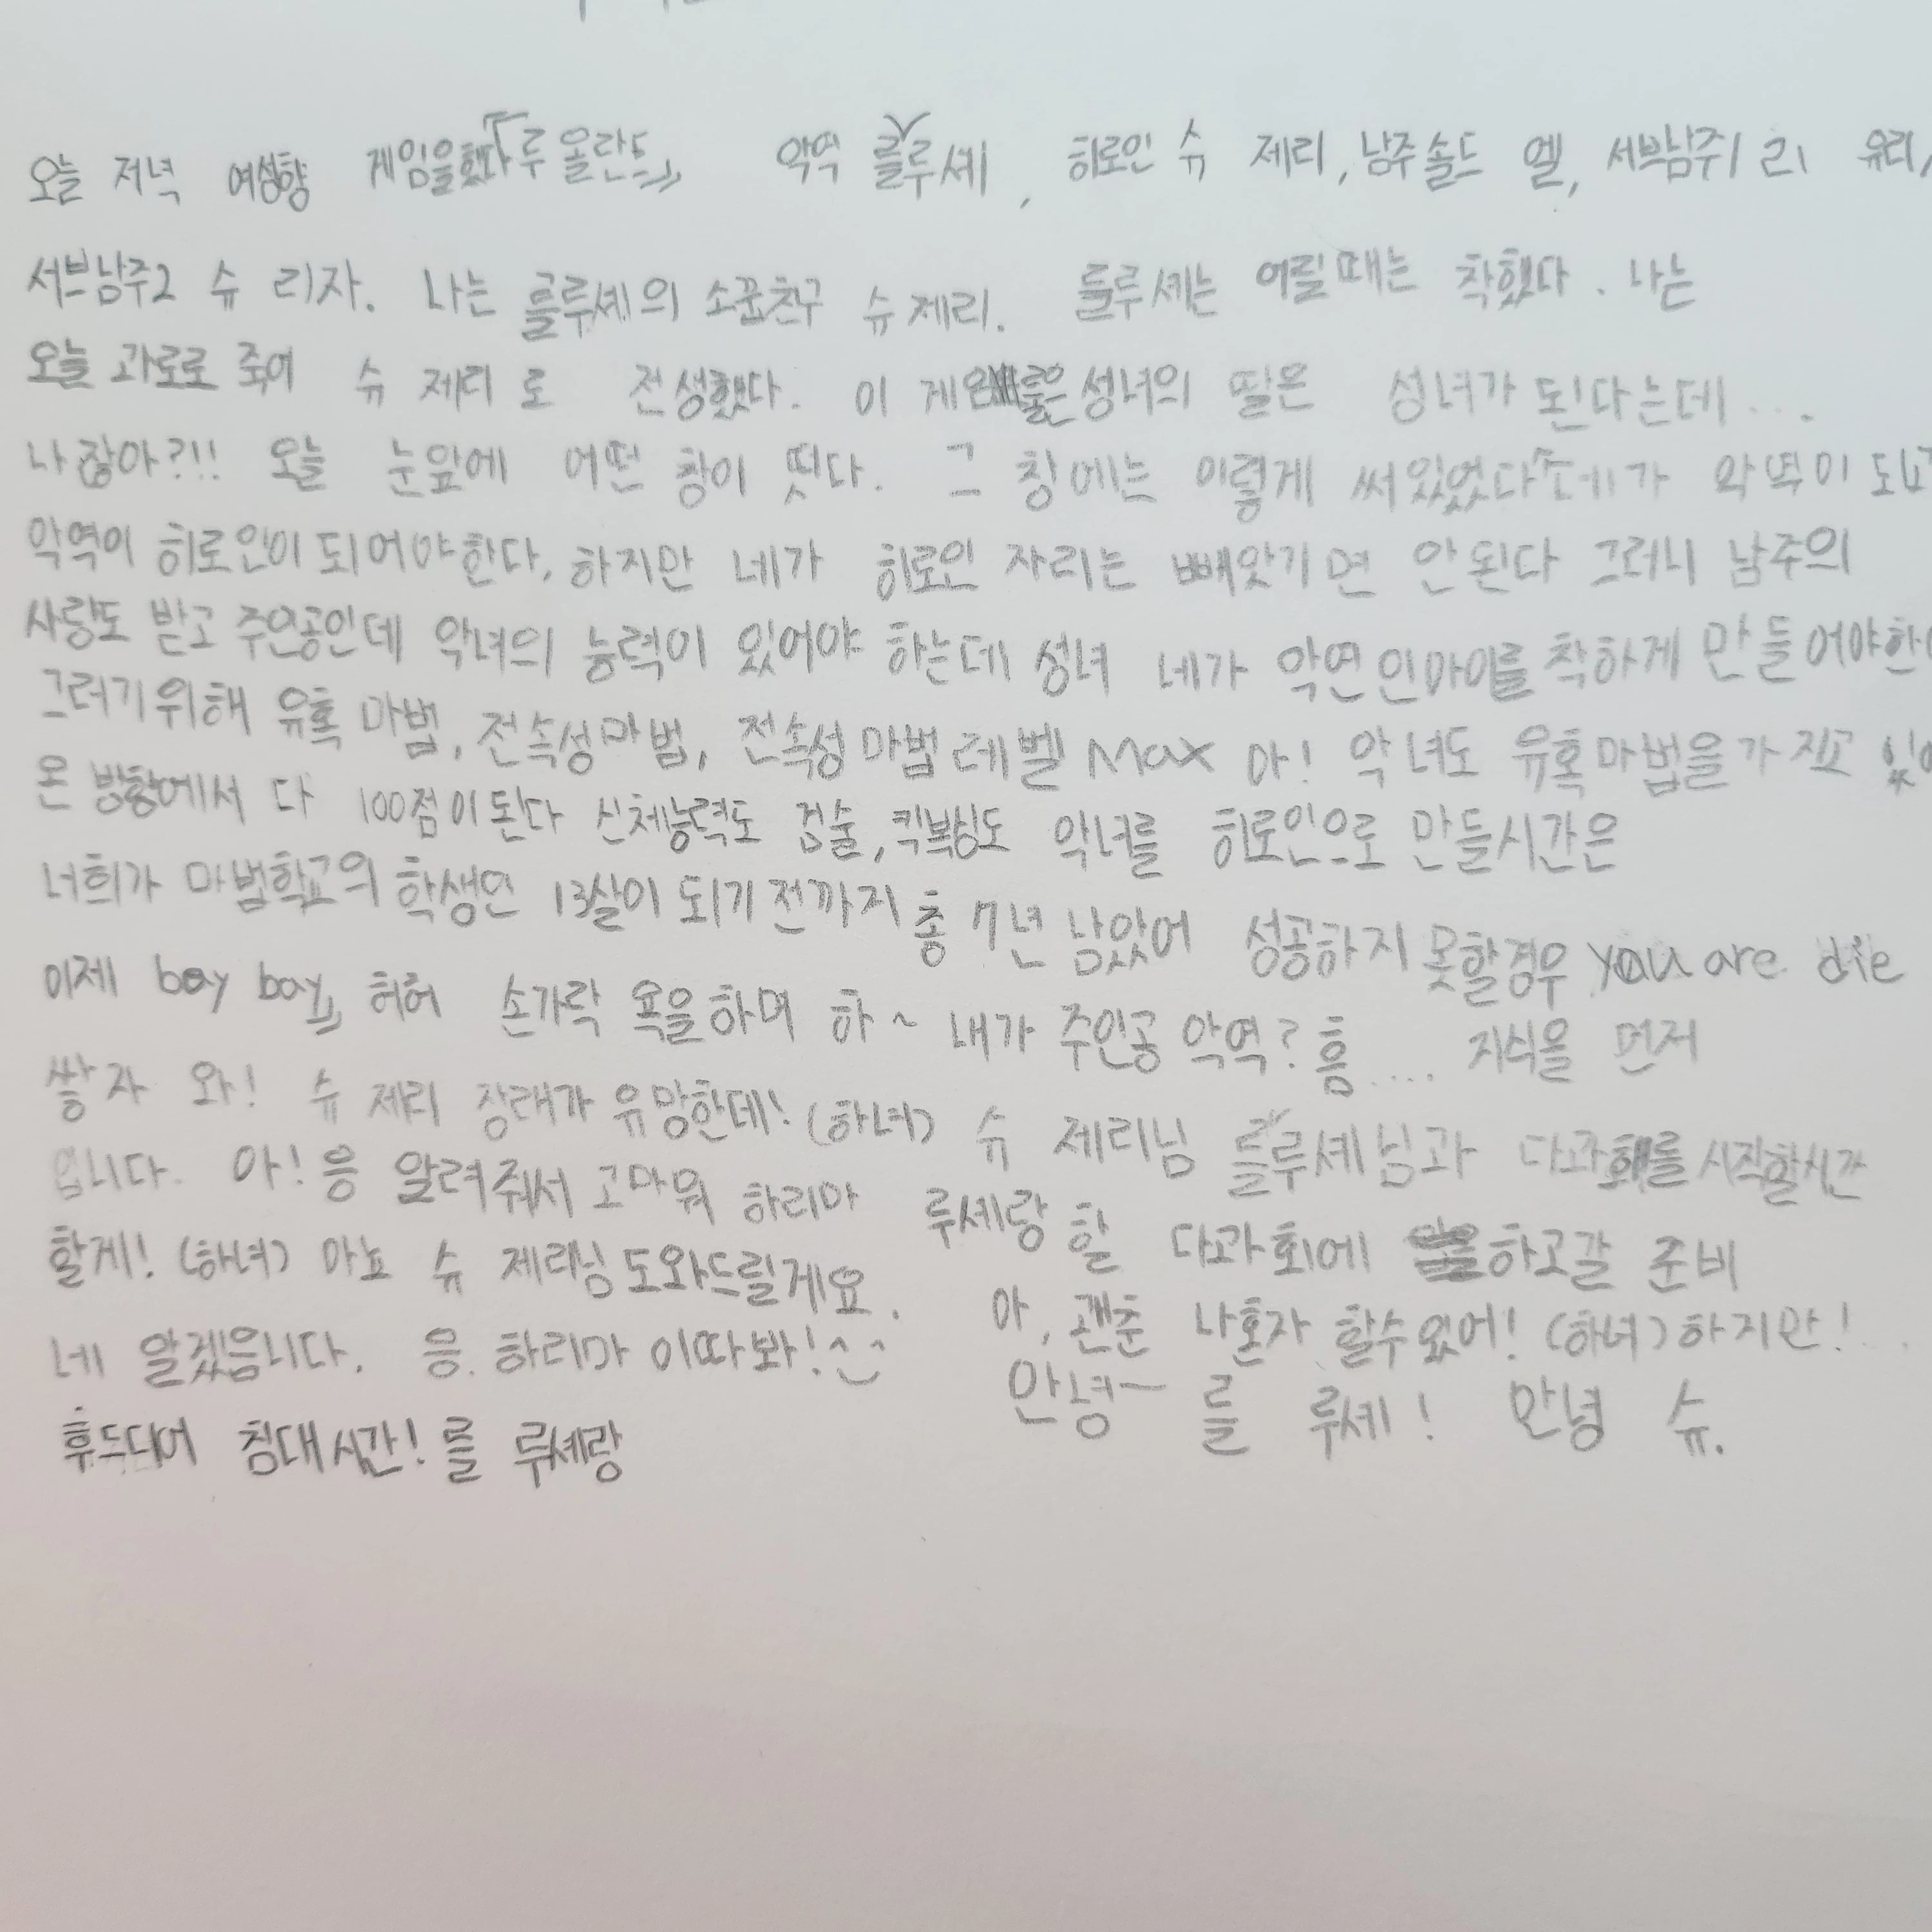 오늘 저녁 여성향 게임을했다『루 올란드』 악역 를루셰, 히로인 슈 제리, 남주솔드 엘, 서브남주1 리 유리,
서브남주2 슈 리자. 나는 를루셰의 소꿉친구 슈제리. 를루셰는 어릴때는 착했다. 나는
오늘 과로로 죽어 슈 제리로 전생했다. 이 게임 룰은성녀의 딸은 성녀가 된다는데....
나잖아?!! 오늘 눈앞에 어떤 창이 떳다. 그 창에는 이렇게 써있었다『네가 악역이 되고
악역이 히로인이되어야한다. 하지만 네가 히로인 자리는 빼앗기면 안된다 그러니 남주의
사랑도 받고 주인공인데 악녀의 능력이 있어야 하는데 성녀 네가 악연인아이를 착하게 만들어야한
그러기위해 유혹마법, 전속성마법, 전속성마법레벨 Max 아! 악녀도 유혹마법을가지고 있
온 방향에서 다 100점이된다 신체능력도 검술, 킥복싱도 악녀를 히로인으로 만들시간은
너희가 마법학교의 학생인 13살이 되기전까지 총 7년 남았어 성공하지 못할경우 you are die
이제 boy boy』 허허 손가락 욕을하며 하~ 내가 주인공 악역? 흠.... 지식을 먼저
쌓자 와! 슈 제리 장래가 유망한데! (하녀) 슈 제리님 를루셰님과 다과회를시작할시간
입니다. 아! 응 알려줘서 고마워 하리마 루셰랑 할 다과회에 하고갈 준비
할게! (하녀) 아뇨 슈 제리님 도와드릴게요. 아, 괜춘 나혼자 할수있어! (하녀) 하지만!...
네 알겠음니다. 응. 하리마 이따봐! 안녕~ 를 루셰! 안녕 슈.
후드디어 침대시간! 를 루셰랑